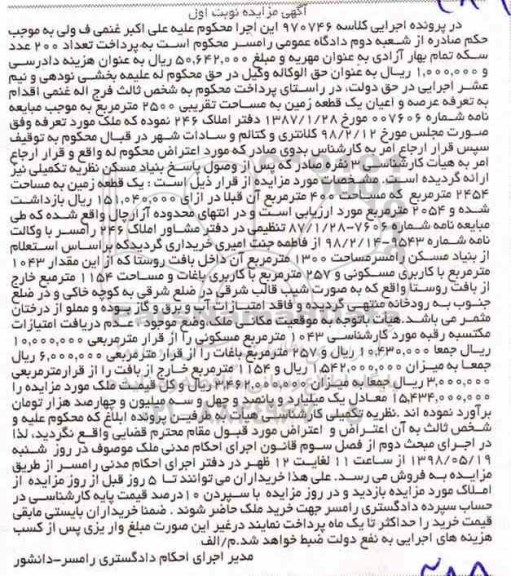 آگهی مزایده نوبت اول
در پرونده اجرایی کلاسه ۹۷۰۷۴۶ این اجرا محکوم علیه علی اکبر غنمی ف ولی به موجب
حکم صادره از شعبه دوم دادگاه عمومی رامسر محکوم است به پرداخت تعداد ۲۰۰ عدد
سکه تمام بهار آزادی به عنوان مهریه و مبلغ ۵۰،۶۴۲،۰۰۰ ریال به عنوان هزینه دادرسی
و ۱،۰۰۰،۰۰۰ ریال به عنوان حق الوکاله وکیل در حق محکوم له علیمه بخشی نودهی و نیم
عشر اجرایی در حق دولت، در راستای پرداخت محکوم به شخص ثالث فرج اله غنمی اقدام
به تعرفه عرصه و اعیان یک قطعه زمین به مساحت تقریبی ۲۵۰۰ مترمربع به موجب مبایعه
نامه شماره ۰۰۷۶۰۶ مورخ ۱۳۸۷/۱/۲۸ دفتر املاک ۲۴۶ نموده که ملک مورد تعرفه وفق
صورت مجلس مورخ ۹۸/۲/۱۲ کلانتری و کتالم و سادات شهر در قبال محکوم به توقیف
سپس قرار ارجاع امر به کارشناس بدوی صادر که مورد اعتراض محکوم له واقع و قرار ارجاع
امر به هیأت کارشناسی ۳ نفره صادر که پس از وصول پاسخ بنیاد مسکن نظریه تکمیلی نیز
ارائه گردیده است . مشخصات مورد مزایده از قرار ذیل است : یک قطعه زمین به مساحت
۲۴۵۴ مترمربع که مساحت ۴۰۰ مترمربع آن قبلا در ازای ۱۵۱،۰۴۰،۰۰۰ ریال بازداشت
شده و ۲۰۵۴ مترمربع مورد ارزیابی است و در انتهای محدوده آزارچال واقع شده که طی
مبایعه نامه شماره ۷۶۰۶-۸۷/۱/۲۸ تنظیمی در دفتر مشاور املاک ۲۴۶ رامسر با وکالت
نامه شماره ۹۵۴۳-۹۸/۲/۱۴ از فاطمه جنت امیری خریداری گردیدکه براساس استعلام
از بنیاد مسکن رامسر مساحت ۱۳۰۰ مترمربع آن داخل بافت روستا که از این مقدار ۱۰۴۳
مترمربع با کاربری مسکونی و ۲۵۷ مترمربع با کاربری باغات و مساحت ۱۱۵۴ مترمبع خارج
از بافت روستا واقع که به صورت شیب قالب شرقی در ضلع شرقی به کوچه خاکی و در ضلع
جنوب به رودخانه منتهی گردیده و فاقد امتیازات آب و برق و گاز بوده و مملو از درختان
مثمر می باشد.هیأت باتوجه به موقعیت مکانی ملک،وضع موجود ، عدم دریافت امتیازات
مکتسبه رقبه مورد کارشناسی ۱۰۴۳ مترمربع مسکونی را از قرار مترمربعی ۱۰،۰۰۰،۰۰۰
ریال جمعا ۱۰،۴۳۰،۰۰۰ ریال و ۲۵۷ مترمربع باغات را از قرار مترمربعی ۶،۰۰۰،۰۰۰ ریال
جمعا به میزان ۱،۵۴۲،۰۰۰،۰۰۰ ریال و ۱۱۵۴ مترمربع خارج از بافت را از قرارمترمربعی
۳،۰۰۰،۰۰۰ ریال جمعا به میزان ۳۴۶۲،۰۰۰،۰۰۰ ریال و کل قیمت ملک مورد مزایده را
۱۵،۴۳۴،۰۰۰،۰۰۰ معادل یک میلیارد و پانصد و چهل و سه میلیون و چهارصد هزار تومان
برآورد نموده اند .نظریه تکمیلی کارشناسی هیأت به طرفین پرونده ابلاغ که محکوم علیه و
شخص ثالث به آن اعتراض و اعتراض مورد قبول مقام محترم قضایی واقع نگردید، لذا
در اجرای مبحث دوم از فصل سوم قانون اجرای احکام مدنی ملک موصوف در روز شنبه
۱۳۹۸/۰۵/۱۹ از ساعت ۱۱ لغایت ۱۲ ظهر در دفتر اجرای احکام مدنی رامسر از طریق
مزایده به فروش می رسد. علی هذا خریداران می توانند تا ۵ روز قبل از روز مزایده از
املاک مورد مزایده بازدید و در روز مزایده با سپردن ۱۰درصد قیمت پایه کارشناسی در
حساب سپرده دادگستری رامسر جهت خرید ملک حاضر شوند . ضمنا خریداران بایستی مابقی
قیمت خرید را حداکثر تا یک ماه پرداخت نمایند درغیر این صورت مبلغ واریزی پس از کسب
هزینه های اجرایی به نفع دولت ضبط خواهد شد.م/الف
مدیر اجرای احکام دادگستری رامسر-دانشور